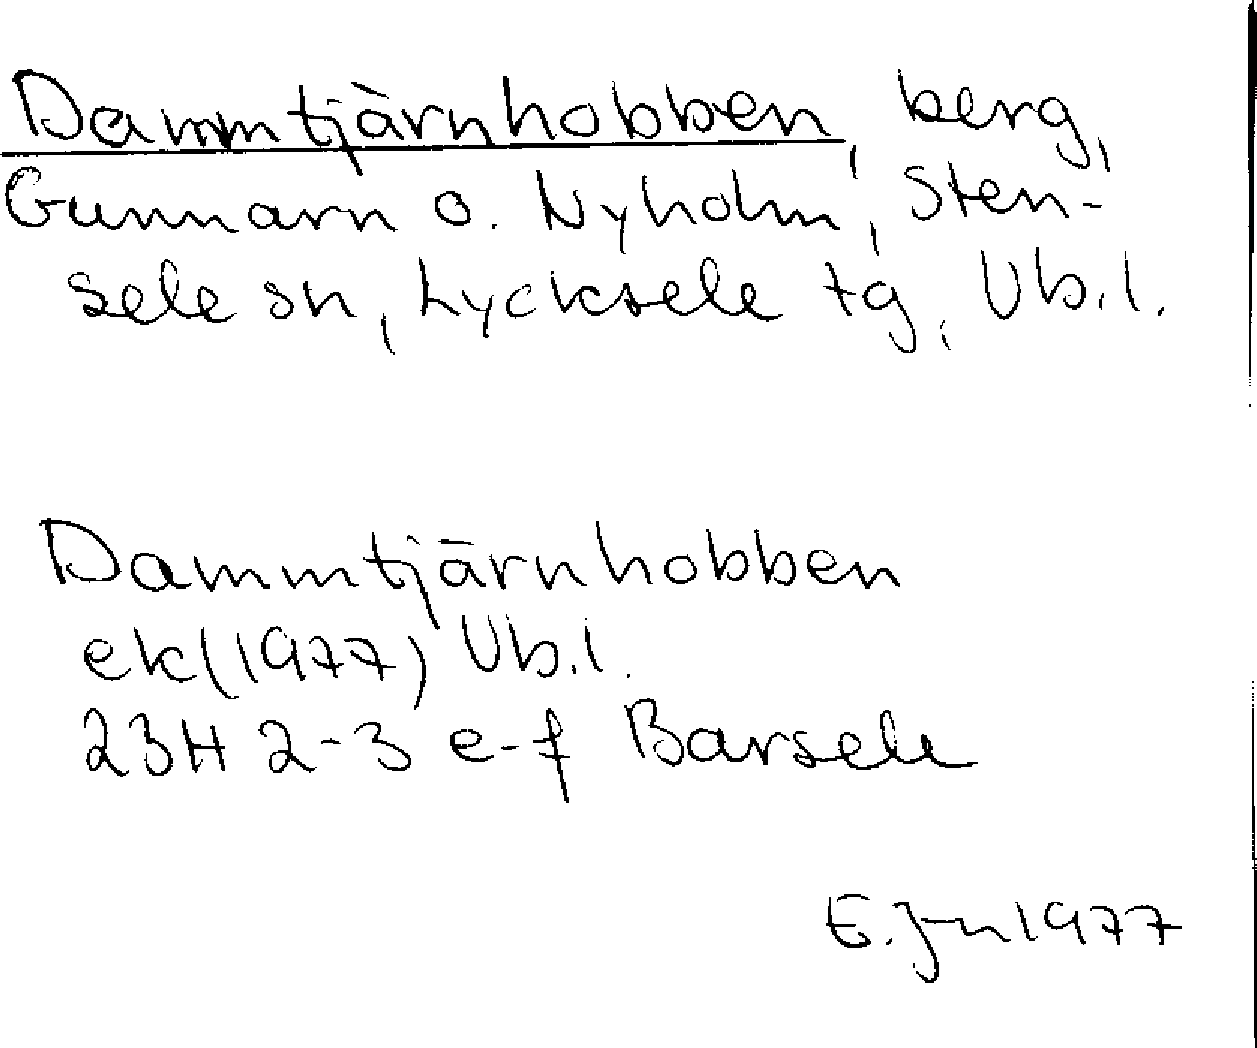 Dammtjärnhobben, berg,
Gunnarn o. Nyholm, Sten-
sele sn, Lycksele tg, Vb.l.
Dammtjärnhobben
ek(1977) Vb.l.
23H 2-3 e-f Barsele
E. Jn 1977